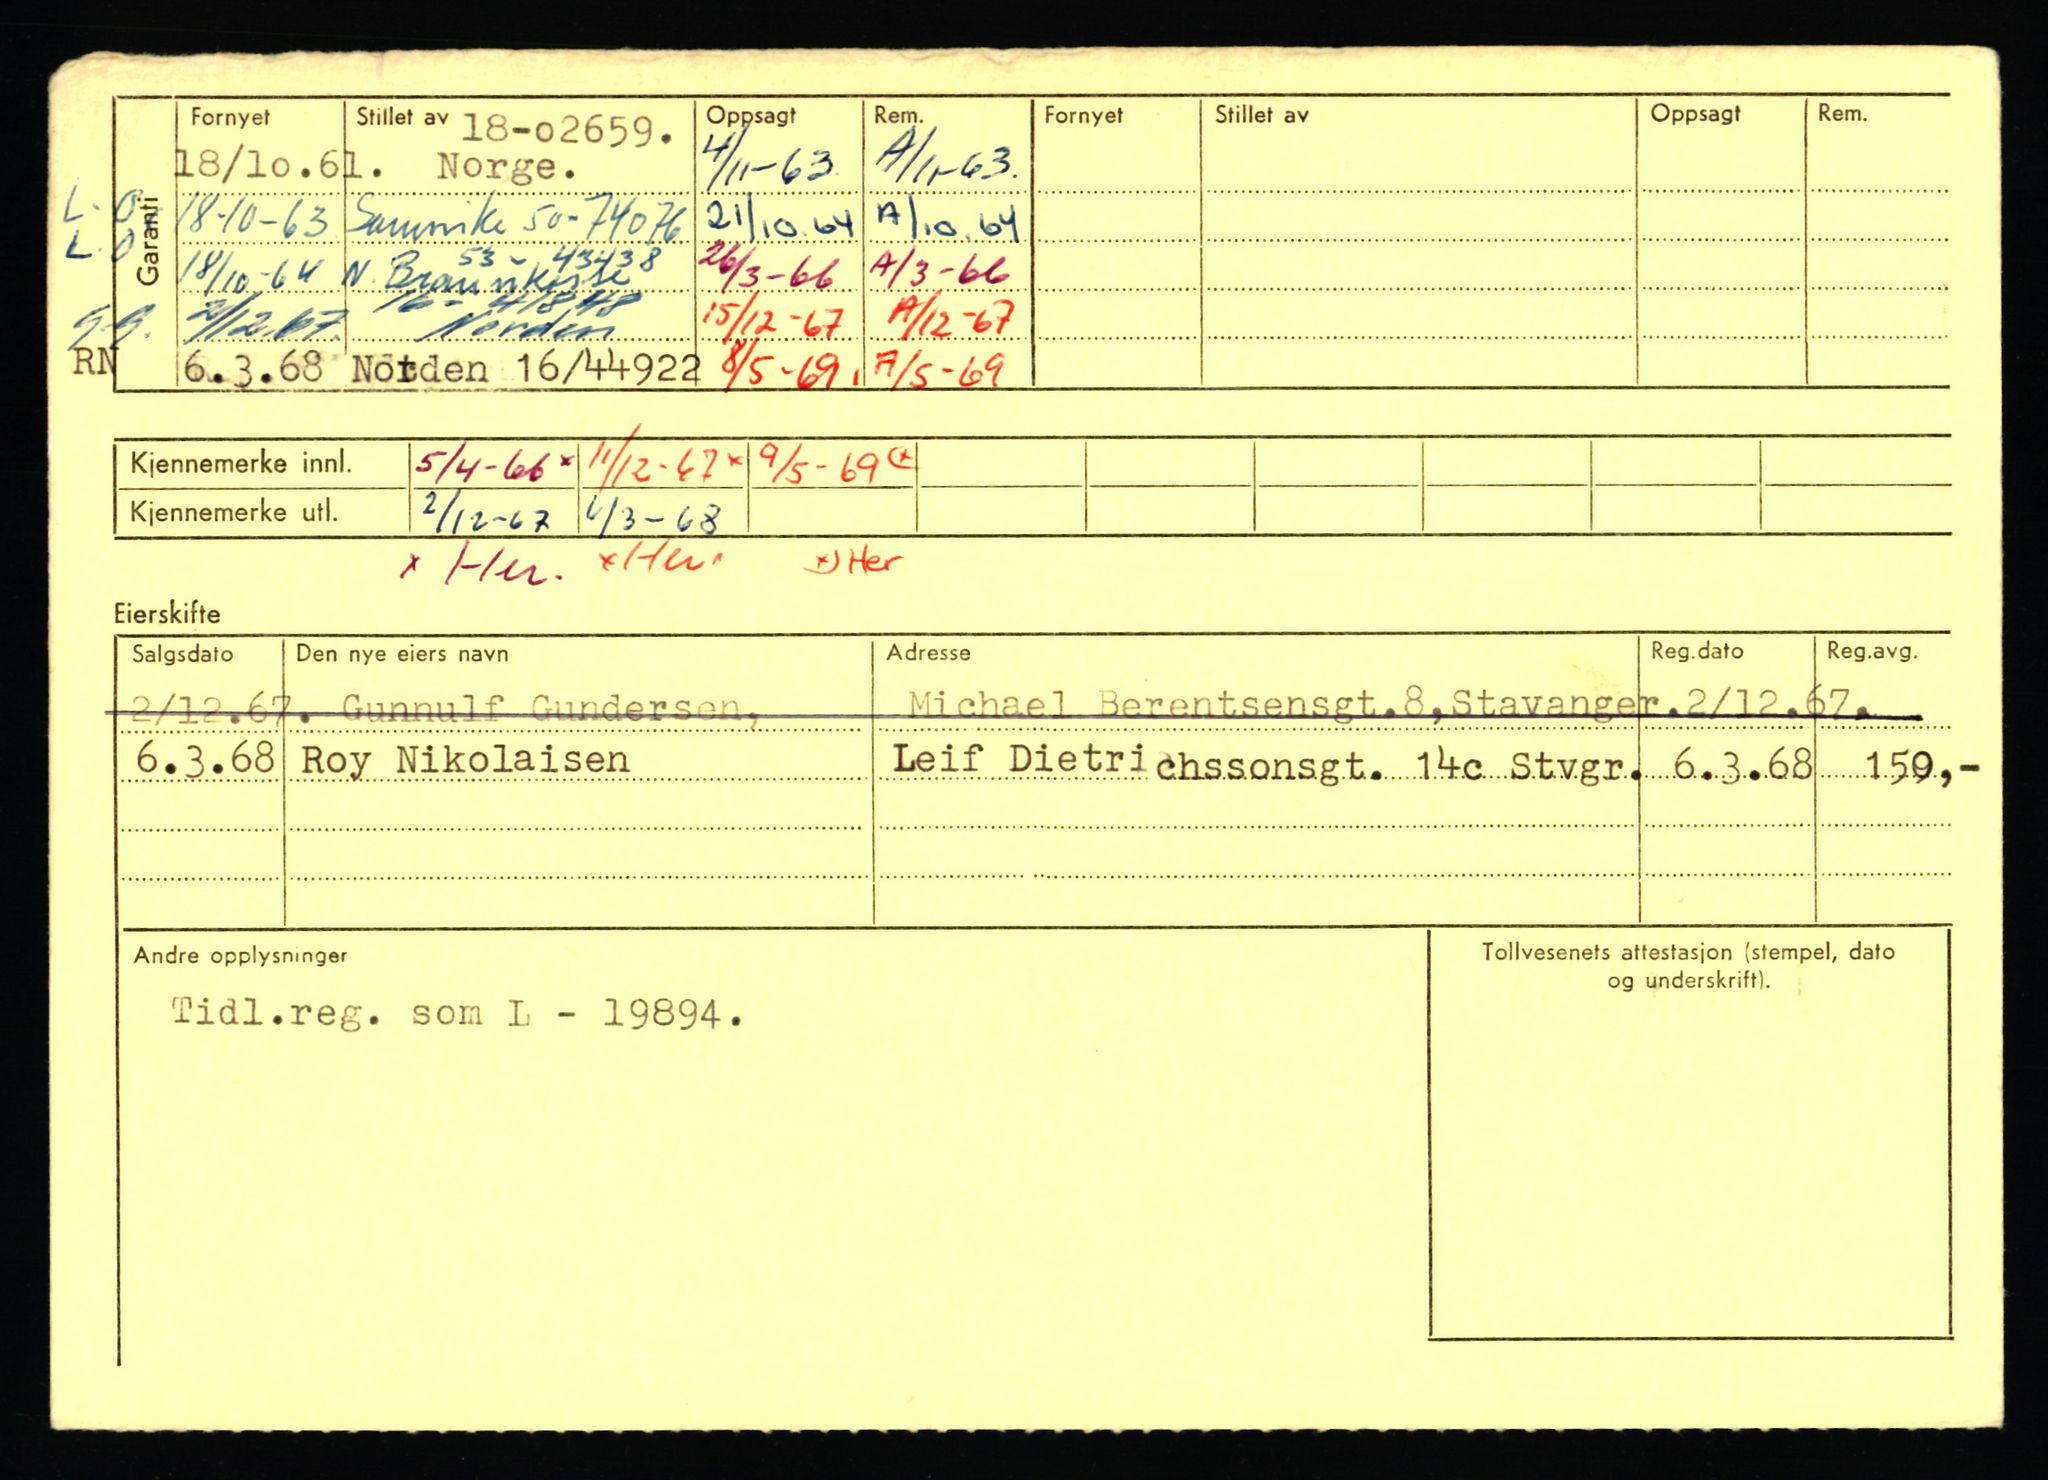 Garanti
Fornyet Stillet av Oppsagt Rem. Fornyet Stillet av Oppsagt Rem.
18-o2659.
18/1o.61. Norge. 4/11-63 A/11-63.
L.O. 18-10-63 50-74076 21/10.64 A/10.64
L.O 53-43438
18/10-64 N. Brannkasse 26/3-66 A/3-66
16-41848
g.g. 2/12.67. Norden 15/12-67 A/12-67
RN 6.3.68 Norden 16/44922 8/5-69. A/5-69
Kjennemerke innl. 5/4-66 x 11/12-67 x 9/5-69 (x
Kjennemerke utl. 2/12-67 6/3-68
x Her. x Her. x) Her
Eierskifte
Salgsdato Den nye eiers navn Adresse Reg.dato Reg.avg.
2/12.67. Gunnulf Gundersen, Michael Berentsensgt.8,Stavanger.2/12.67.
6.3.68 Roy Nikolaisen Leif Dietrichssonsgt. 14c Stvgr. 6.3.68 150,-
Andre opplysninger
Tollvesenets attestasjon (stempel, dato
og underskrift).
Tidl.reg. som L - 19894.